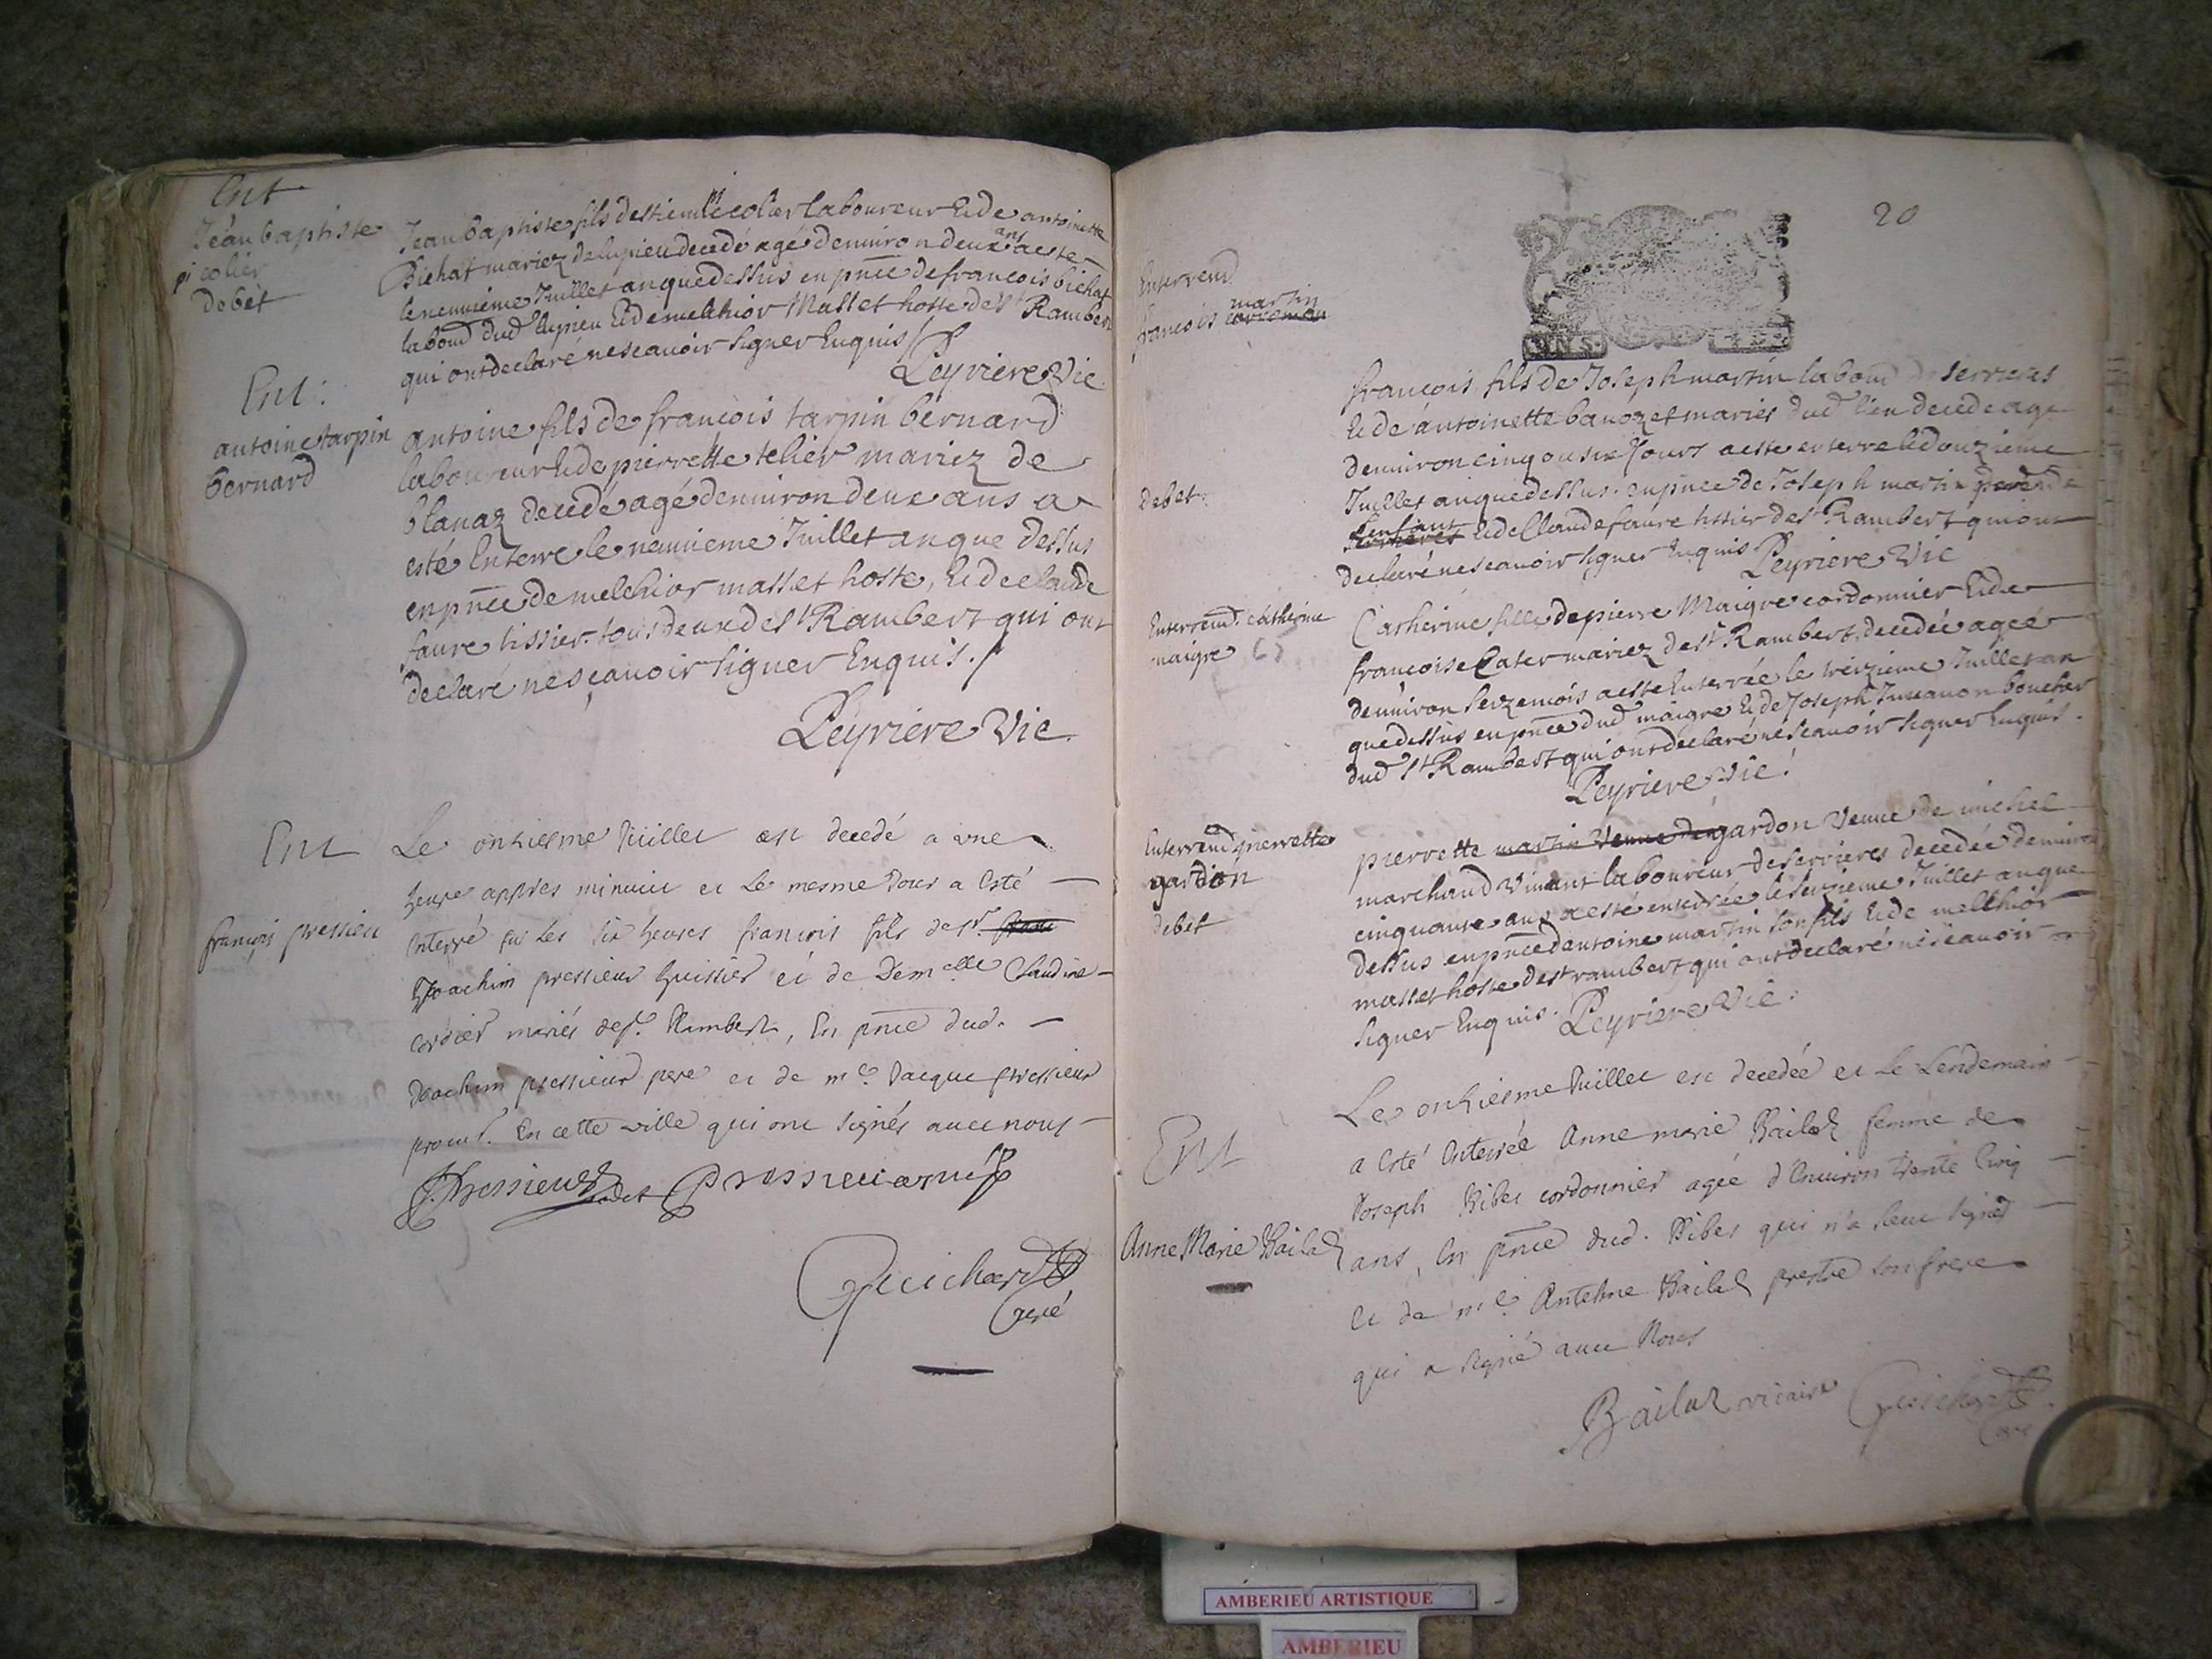 Ent
Jean baptiste
picolier
debet
Jean baptiste fils destienne picolier laboureur & de antoinette
Bichat mariez de lupieu decedé agé denuiron deux ans a este
le neuuieme Juillet an que dessus en pnce de francois bichat
labour dud lupieu & de melchior Masset hoste de st Rambert
qui ont declaré ne scauoir signer Enquis /
Peyriere Vic.
Ent:
antoine tarpin
bernard
antoine fils de francois tarpin bernard
laboureur & de pierrette telier mariez de
blanaz decedé agé denuiron deux ans a
esté Enterre le neuuieme Juillet an que dessus
en pnce de melchior masset hoste, & de claude
faure tissier tous deux de st Rambert qui ont
declaré ne sçauoir signer Enquis. /
Peyriere Vic.
Ent
françois pressieu
Le onziesme Juillet est decedé a vne
heure appres minuict et le mesme Jour a esté
enterré sur les six heures francois fils de sr. franc
Joachim pressieux huissier et de Demelle Claudine
cordier mariés de st. Rambert, En pnce dud.
Joachim pressieux pere et de me. Jacque pressieux
procur. En cette ville qui ont signés auec nous
Pressieux cadet Pressieu aisné
Guichard
Curé
20
Enterremt
francois martin carreman
Debet
francois fils de Joseph martin labour de serrieres
& de antoinette banozet mariés dud lieu decede age
denuiron cinq ou six Jours a este enterre le douzieme
Juillet an que dessus. en pnce de Joseph martin pere de
lenfant serrieres & de Claude faure tissier de st Rambert qui ont
declaré ne scauoir signer Enquis Peyriere Vic
Enterremt. catherine
maigre
Catherine fille de pierre Maigre cordonnier & de
francoise Cater mariez de st Rambert decedée agée
denuiron seize mois a este Enterrée le treizieme Juillet an
que dessus en pnce dud maigre & de Joseph Juuanon boucher
dud st Rambert qui ont declaré ne scauoir signer Enquis.
Peyriere Vic.
Enterremt pierrette
gardon
debet
pierrette martin veuue de gardon veuue de michel
marchand viuant laboureur de serrieres decedée denuiron
cinquante ans a este enterrée le seizieme Juillet an que
dessus en pnce dentoine martin son fils & de melchior
masset hoste de st rambert qui ont declaré ne scauoir
signer Enquis. Peyriere Vic.
Ent
Anne Marie Bailad
Le onziesme Juillet est decedée et le Lendemain
a esté Enterrée Anne marie Bailad femme de
Joseph Ribet cordonnier agée d'Enuiron trente Cinq
ans, En pnce dud. Ribet qui n'a sceu signer
et de me. Anthelme Bailad prestre son frere
qui a signé auec Nous
Bailad vicaire Guichard
Curé
AMBERIEU ARTISTIQUE
AMBERIEU